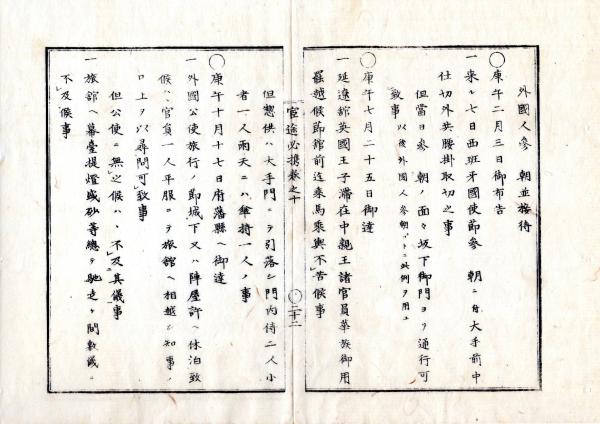 外國人參　朝並接待
◯庚午二月三日御布告
一來ル七日西班牙國使節參　朝ニ付大手前中
仕切外共腰掛取切之事
但當日參　朝ノ面々坂下御門ヨリ通行可
致事　以後外國人參朝ノトキハ此例ヲ用ユ
◯庚午七月二十五日御達
一延遼舘英國王子滯在中親王諸官員華族御用
罷越候節舘前迄乘馬乘輿不苦候事
官途必携卷之十
◯二十二
但惣供ハ大手門ニヲ引落シ門內侍二人小
者一人雨天ニハ傘持一人ノ事
◯庚午十月十七日府藩縣ヘ御達
一外國公使旅行ノ節城下又ハ陣屋許ヘ休泊致
候ハヽ官員一人平服ニテ旅舘ヘ相越シ知事ノ
口上ヲ以尋問可致事
但公使ニ無之候ハヽ不及其儀事
一旅舘ヘ幕臺提燈或砂等總テ馳走ヶ間敷儀ニ
不及候事